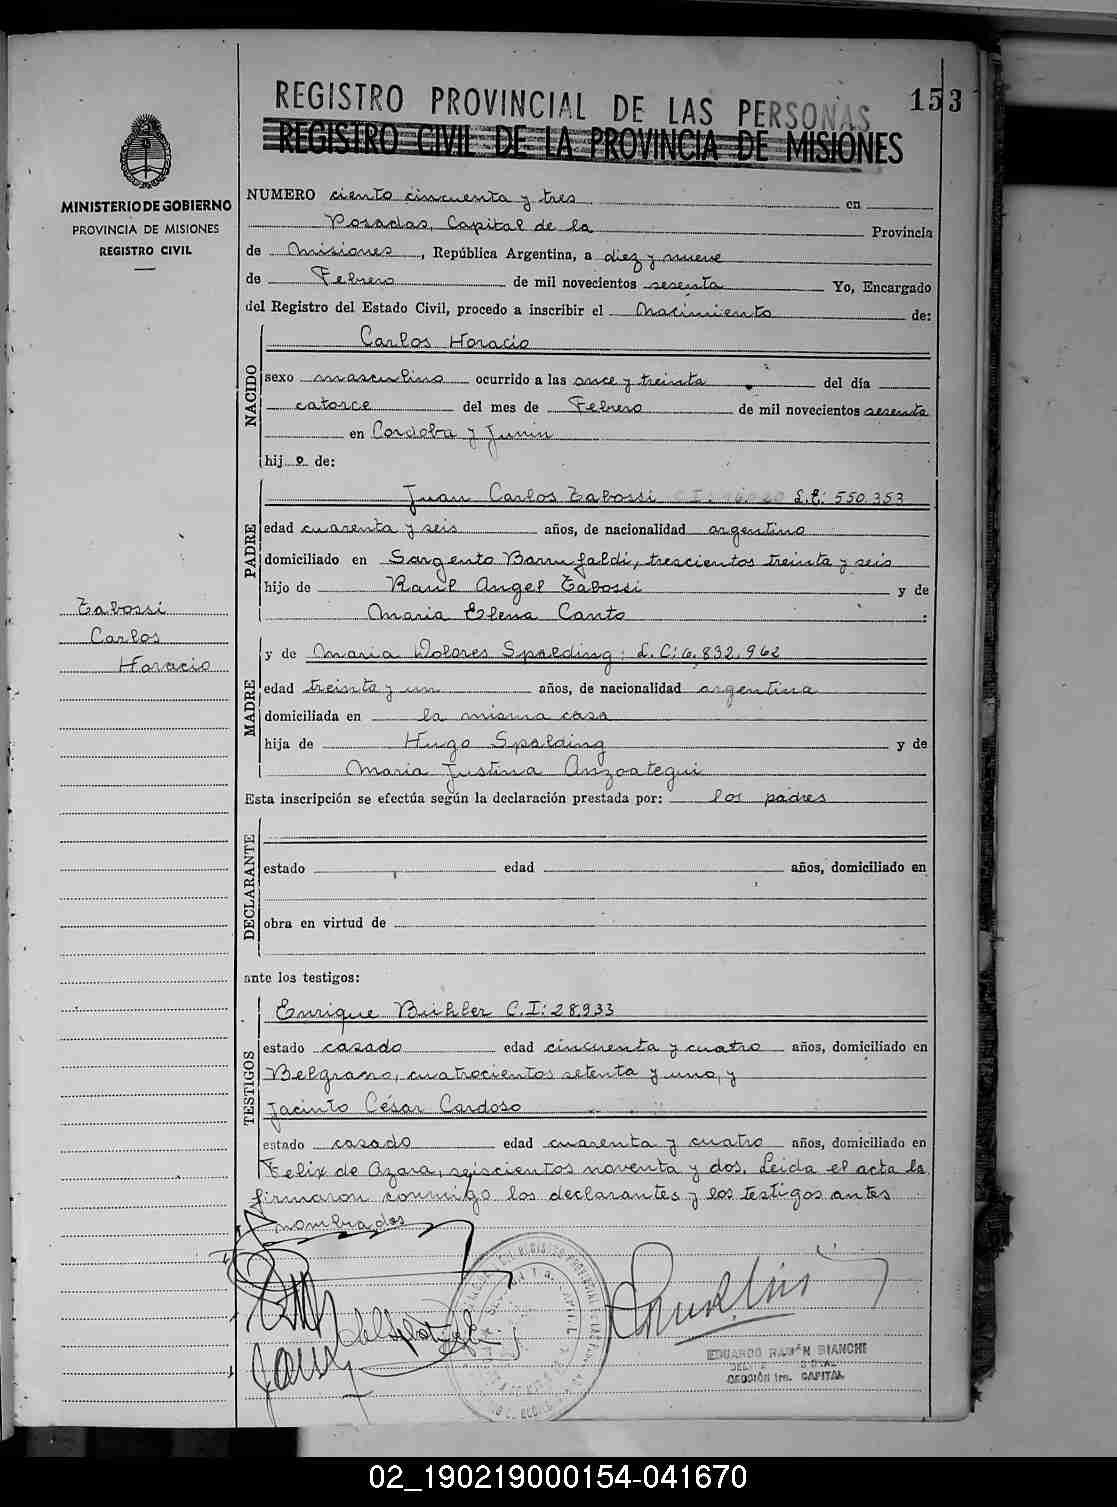 REGISTRO PROVINCIAL DE LAS PERSONAS
153
REGISTRO CIVIL DE LA PROVINCIA DE MISIONES
MINISTERIO DE GOBIERNO
PROVINCIA DE MISIONES
REGISTRO CIVIL
NUMERO ciento cincuenta y tres en
Posadas, Capital de la Provincia
de Misiones, República Argentina, a diez y nueve
de Febrero de mil novecientos sesenta Yo, Encargado
del Registro del Estado Civil, procedo a inscribir el Nacimiento de:
NACIDO
Carlos Horacio
sexo masculino ocurrido a las once y treinta del día
catorce del mes de Febrero de mil novecientos sesenta
en Cordoba y Junin
hijo de:
PADRE
Juan Carlos Tabossi C.I. L.E: 550.353
edad cuarenta y seis años, de nacionalidad argentino
domiciliado en Sargento Barrufaldi, trescientos treinta y seis
hijo de Raul Angel Tabossi y de
Maria Elena Canto :
Tabossi
Carlos
Horacio
MADRE
y de Maria Dolores Spalding: L.C: 6.832.962
edad treinta y un años, de nacionalidad argentina
domiciliada en la misma casa
hija de Hugo Spalding y de
Maria Justina Anzoategui
Esta inscripción se efectúa según la declaración prestada por: los padres
DECLARANTE
estado edad años, domiciliado en
obra en virtud de
ante los testigos:
TESTIGOS
Enrique Buhler C.I: 28.933
estado casado edad cincuenta y cuatro años, domiciliado en
Belgrano, cuatrocientos setenta y uno, y
Jacinto César Cardoso
estado casado edad cuarenta y cuatro años, domiciliado en
Felix de Azara, seiscientos noventa y dos. Leida el acta la
firmaron conmigo los declarantes y los testigos antes
nombrados
EDUARDO RAMÓN BIANCHI
SECCIÓN 1ra. CAPITAL
02_190219000154-041670